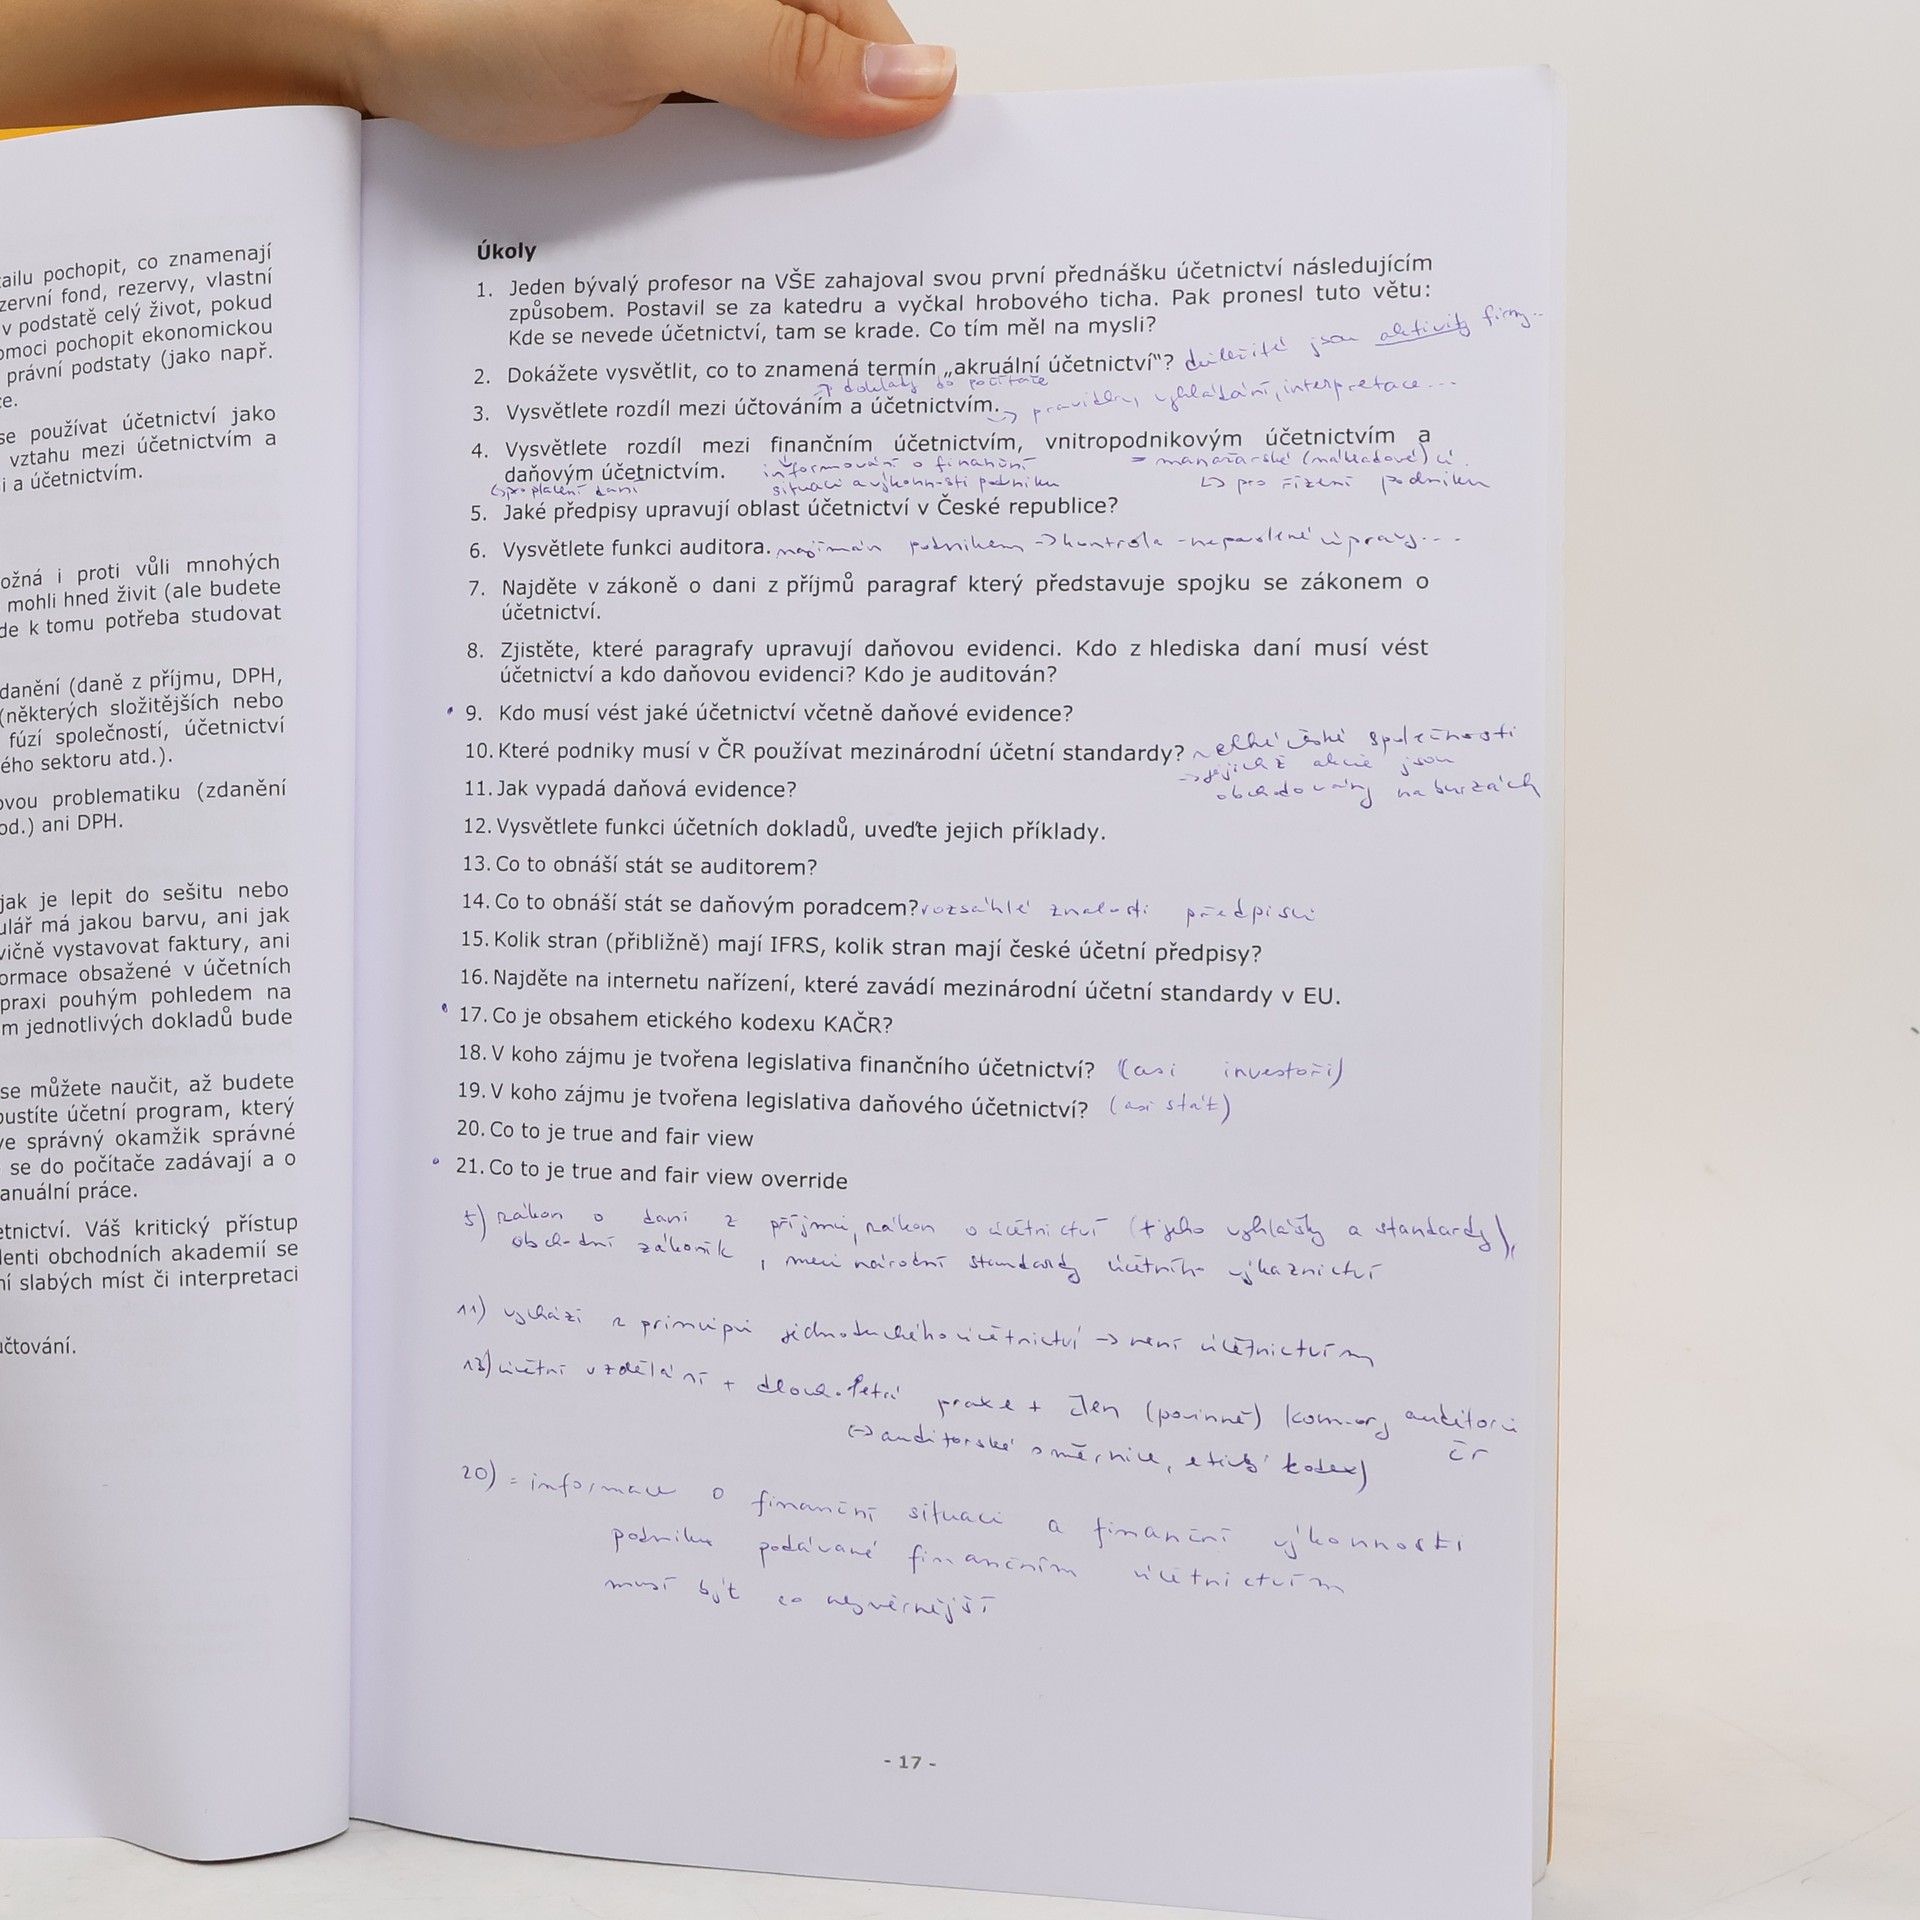 ailu pochopit, co znamenají
zervní fond, rezervy, vlastní
v podstatě celý život, pokud
omoci pochopit ekonomickou
právní podstaty (jako např.
ce.
se používat účetnictví jako
vztahu mezi účetnictvím a
i a účetnictvím.
ožná i proti vůli mnohých
mohli hned živit (ale budete
de k tomu potřeba studovat
danění (daně z příjmu, DPH,
(některých složitějších nebo
fúzí společností, účetnictví
ého sektoru atd.).
ovou problematiku (zdanění
od.) ani DPH.
jak je lepit do sešitu nebo
ulář má jakou barvu, ani jak
vičně vystavovat faktury, ani
ormace obsažené v účetních
praxi pouhým pohledem na
m jednotlivých dokladů bude
se můžete naučit, až budete
pustíte účetní program, který
ve správný okamžik správné
se do počítače zadávají a o
anuální práce.
etnictví. Váš kritický přístup
denti obchodních akademií se
ní slabých míst či interpretaci
účtování.
Úkoly
1. Jeden bývalý profesor na VŠE zahajoval svou první přednášku účetnictví následujícím
způsobem. Postavil se za katedru a vyčkal hrobového ticha. Pak pronesl tuto větu:
Kde se nevede účetnictví, tam se krade. Co tím měl na mysli?
2. Dokážete vysvětlit, co to znamená termín „akruální účetnictví"? důležité jsou aktivity firmy...
→ doklady do počítače
3. Vysvětlete rozdíl mezi účtováním a účetnictvím. → pravidla, vyhledání, interpretace...
4. Vysvětlete rozdíl mezi finančním účetnictvím, vnitropodnikovým účetnictvím a
daňovým účetnictvím. informování o finanční = manažerské (nákladové) ú.
↳ pro placení daní situaci a výkonnosti podniku ↳ pro řízení podniku
5. Jaké předpisy upravují oblast účetnictví v České republice?
6. Vysvětlete funkci auditora. najímán podnikem → kontrola - nepovolené úpravy...
7. Najděte v zákoně o dani z příjmů paragraf který představuje spojku se zákonem o
účetnictví.
8. Zjistěte, které paragrafy upravují daňovou evidenci. Kdo z hlediska daní musí vést
účetnictví a kdo daňovou evidenci? Kdo je auditován?
9. Kdo musí vést jaké účetnictví včetně daňové evidence?
10. Které podniky musí v ČR používat mezinárodní účetní standardy? velké české společnosti
→ jejichž akcie jsou
obchodovány na burzách
11. Jak vypadá daňová evidence?
12. Vysvětlete funkci účetních dokladů, uveďte jejich příklady.
13. Co to obnáší stát se auditorem?
14. Co to obnáší stát se daňovým poradcem? rozsáhlé znalosti předpisů
15. Kolik stran (přibližně) mají IFRS, kolik stran mají české účetní předpisy?
16. Najděte na internetu nařízení, které zavádí mezinárodní účetní standardy v EU.
17. Co je obsahem etického kodexu KAČR?
18. V koho zájmu je tvořena legislativa finančního účetnictví? (asi investoři)
19. V koho zájmu je tvořena legislativa daňového účetnictví? (asi stát)
20. Co to je true and fair view
21. Co to je true and fair view override
5) zákon o dani z příjmů, zákon o účetnictví (+ jeho vyhlášky a standardy),
obchodní zákoník, mezinárodní standardy účetního výkaznictví
11) vychází z principů jednoduchého účetnictví → není účetnictvím
13) účetní vzdělání + dlouholetá praxe + člen (povinně) komory auditorů
ČR
(→ auditorské směrnice, etický kodex)
20) = informace o finanční situaci a finanční výkonnosti
podniku podávané finančním účetnictvím
musí být co nejvěrnější
- 17 -